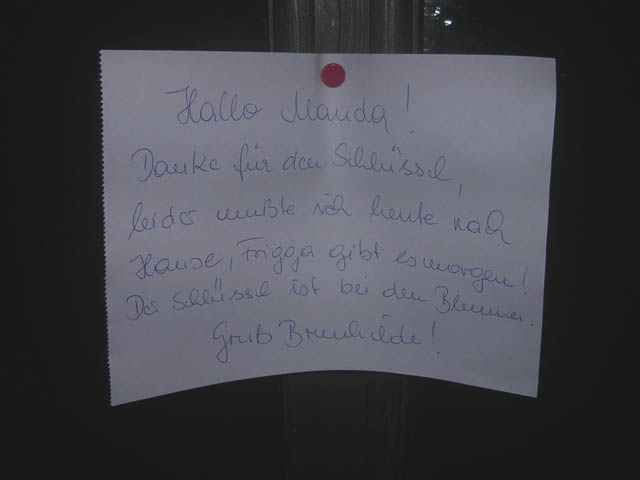 Hallo Manda!
Danke für den Schlüssel,
leider mußte ich heute nach
Hause, Frigga gibt es morgen!
Der Schlüssel ist bei den Blumen.
Gruß Brunhilde!